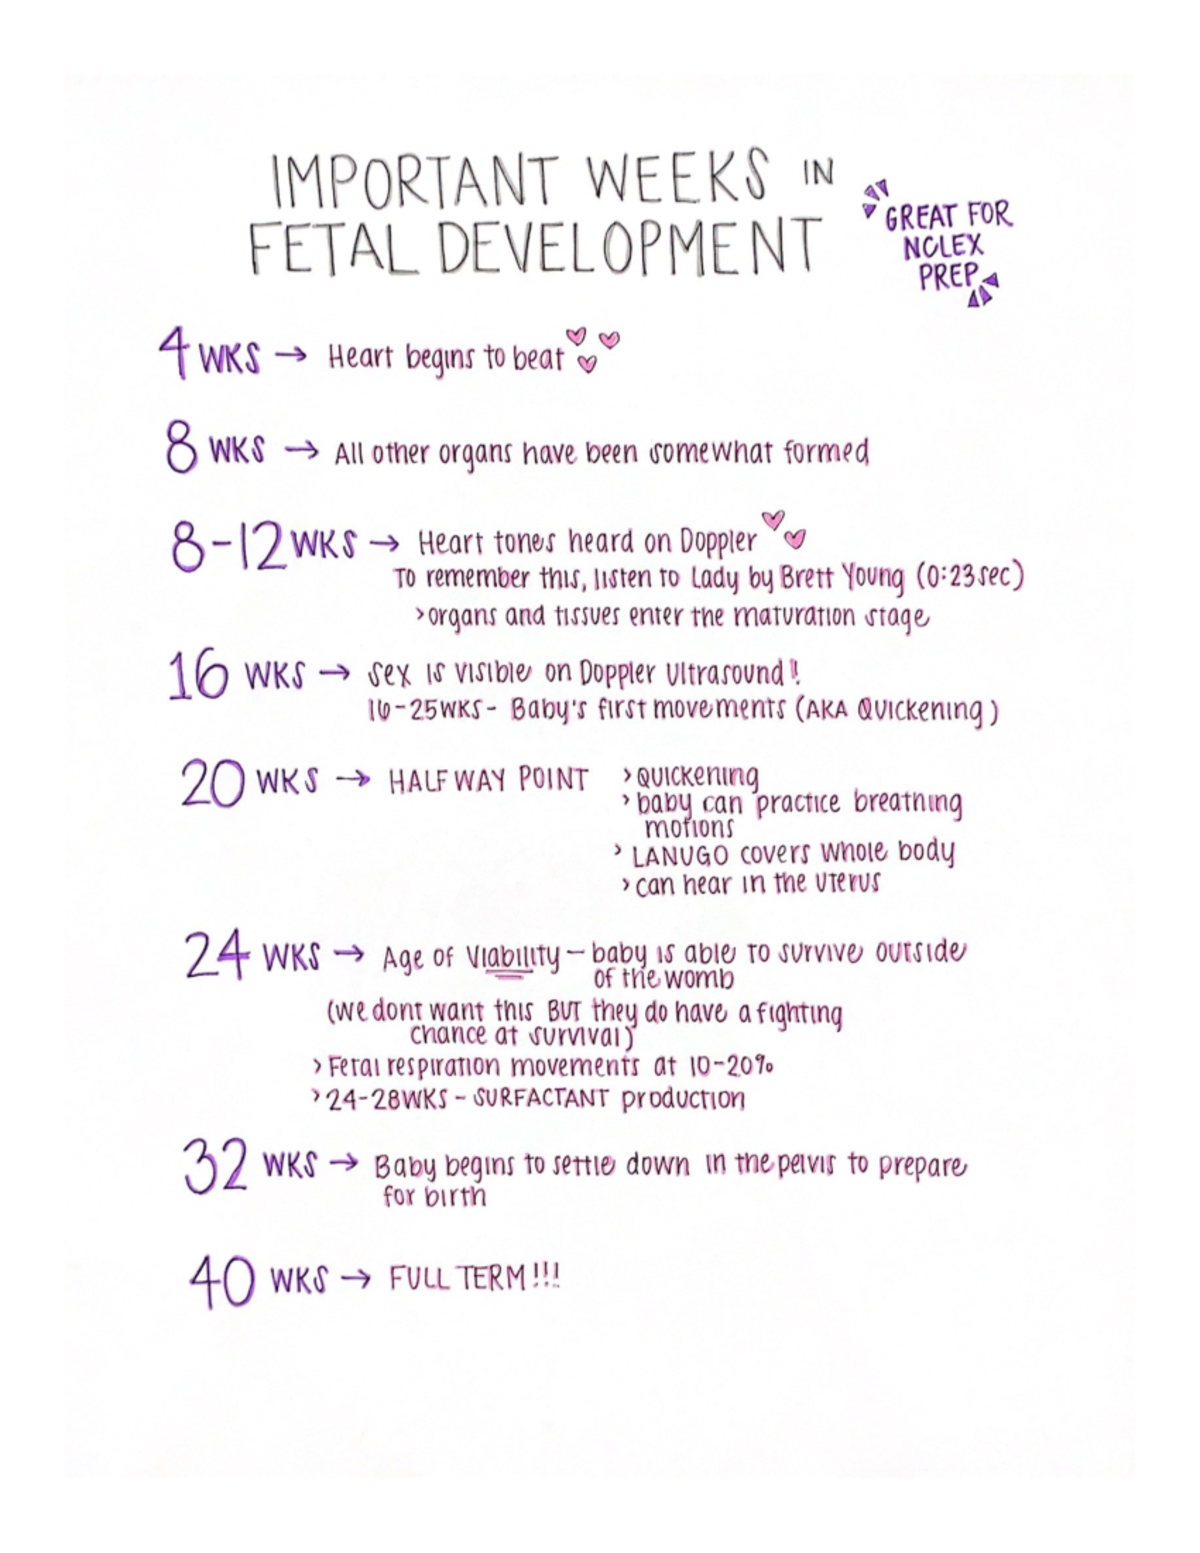 IMPORTANT WEEKS IN
FETAL DEVELOPMENT
GREAT FOR
NCLEX
PREP
4 WKS → Heart begins to beat
8 WKS → All other organs have been somewhat formed
8-12 WKS → Heart tones heard on Doppler
To remember this, listen to Lady by Brett Young (0:23 sec)
>organs and tissues enter the maturation stage
16 WKS → Sex is visible on Doppler Ultrasound!
16-25WKS- Baby's first movements (AKA Quickening)
20 WKS → HALFWAY POINT >QUICKening
>baby can practice breathing
motions
>LANUGO covers whole body
>can hear in the uterus
24 WKS → Age of Viability - baby is able to survive outside
of the womb
(we dont want this BUT they do have a fighting
chance at survival)
>Fetal respiration movements at 10-20%
>24-28WKS - SURFACTANT production
32 WKS → Baby begins to settle down in the pelvis to prepare
for birth
40 WKS → FULL TERM!!!